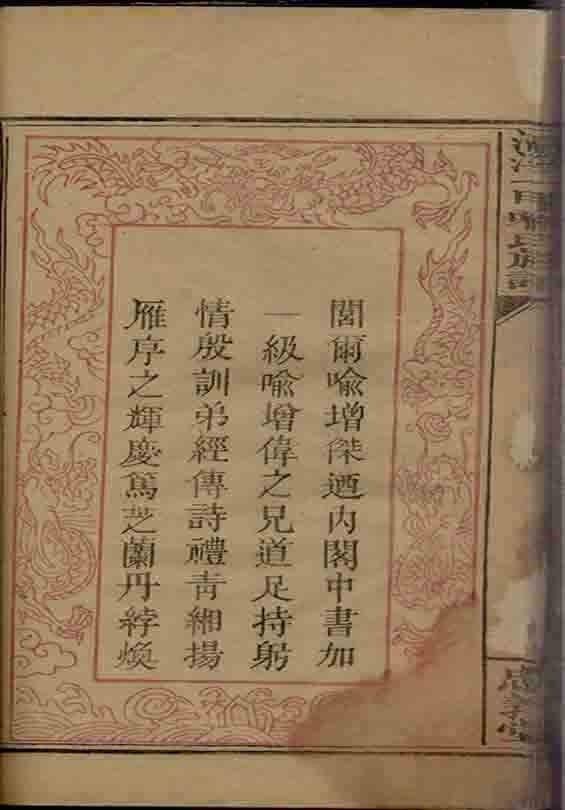 閣爾喻增傑迺內閣中書加
一級喻增偉之兄道足持躬
情殷訓弟經傳詩禮青緗揚
雁序之輝慶篤芝蘭丹綍煥
喻氏族
堂